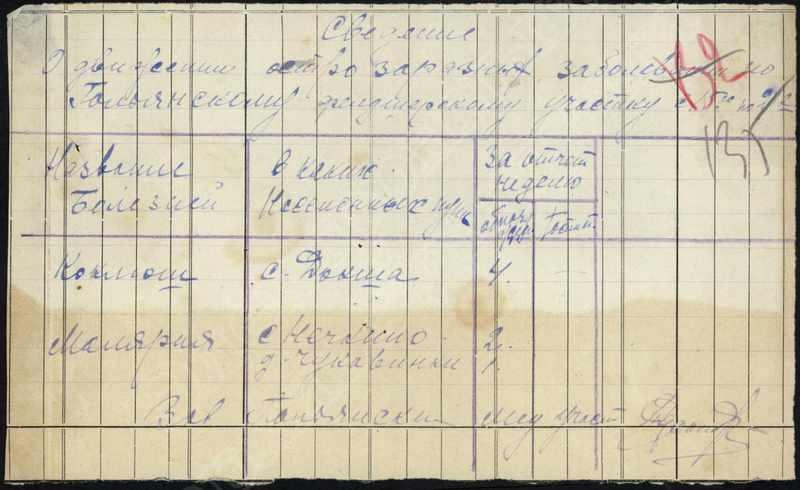 Сведение
О движении остро заразных заболеваний по
Гольянскому фельдшерскому участку с 15 по
132
135
Название Болезней
в каких Населенных пунк
За отчет неделю
Коклюш с. Докша 4.
Малярия с Нечкино 2.
д. Чукавинки 1.
Зав Гольянски мед участ